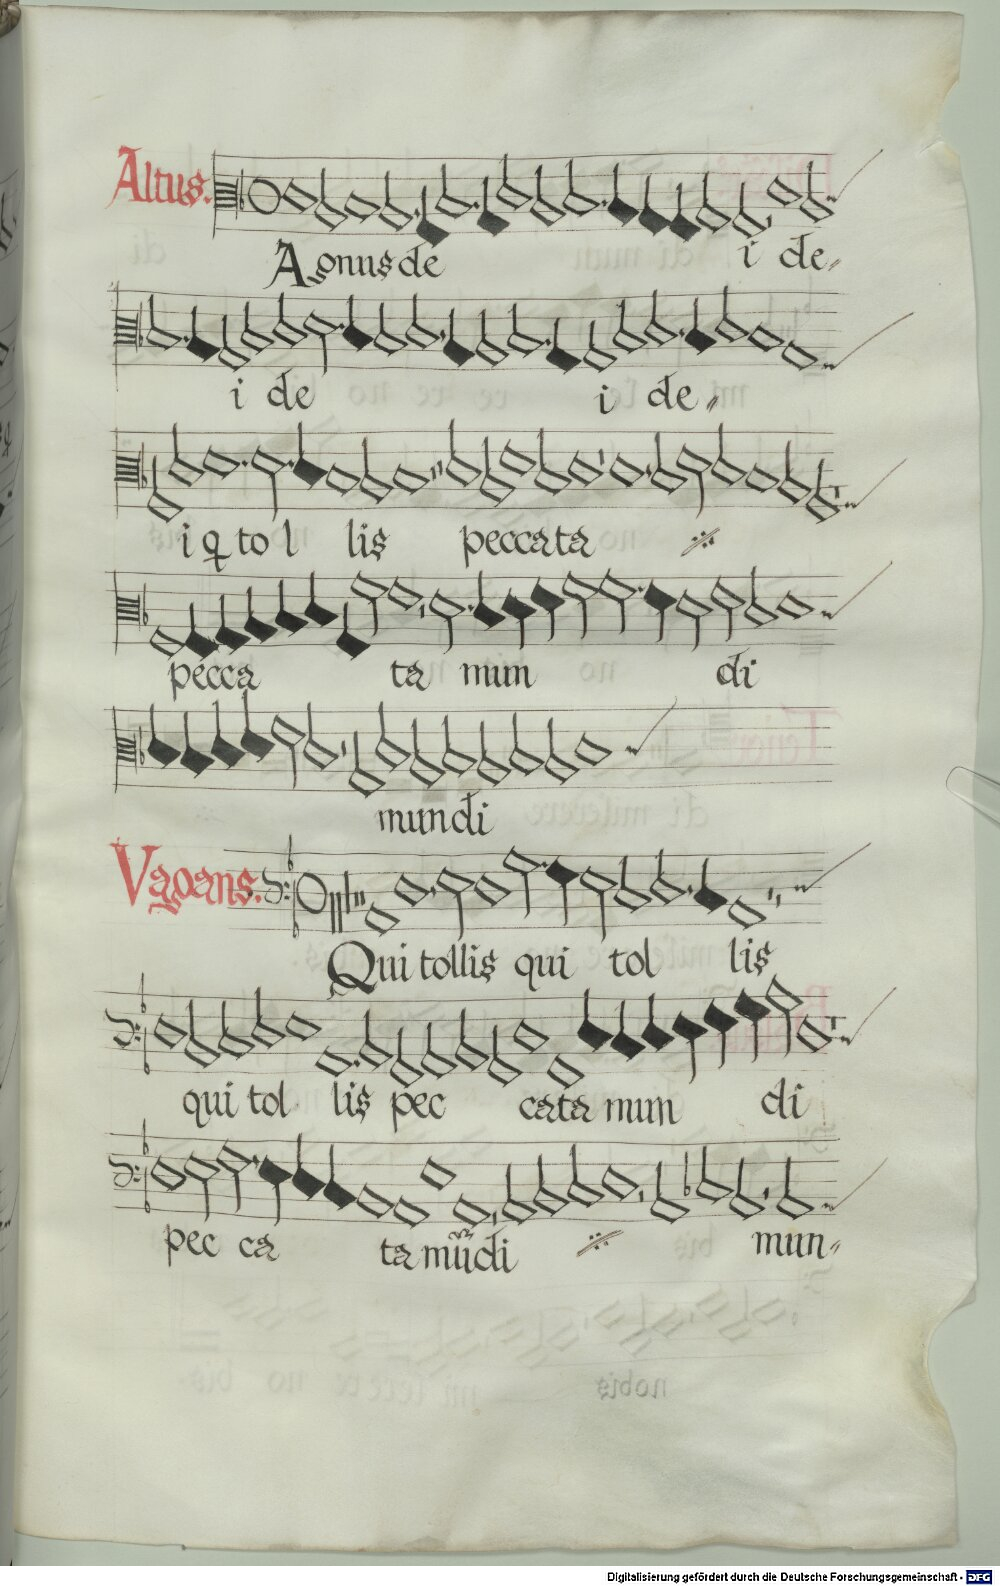 Altus.
Agnus de i de
i de i de
i q tol lis peccata
pecca ta mun di
mundi
Vagans.
Qui tollis qui tol lis
qui tol lis pec cata mun di
pec ca ta mũdi mun
nobis
Digitalisierung gefördert durch die Deutsche Forschungsgemeinschaft - DFG